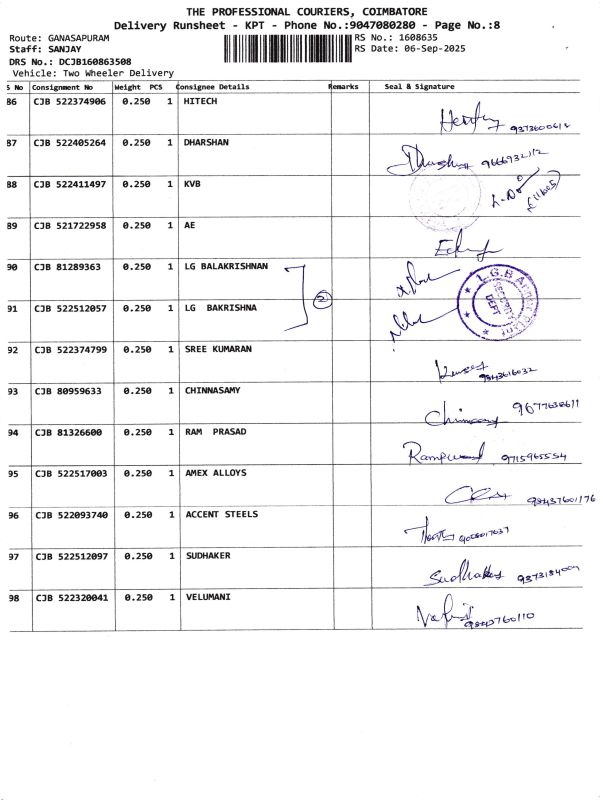 THE PROFESSIONAL COURIERS, COIMBATORE
Delivery Runsheet - KPT - Phone No.:9047080280 - Page No.:8
Route: GANASAPURAM
RS No.: 1608635
Staff: SANJAY
RS Date: 06-Sep-2025
DRS No.: DCJB160863508
Vehicle: Two Wheeler Delivery
S No Consignment No Weight PCS Consignee Details Remarks Seal & Signature
86 CJB 522374906 0.250 1 HITECH
87 CJB 522405264 0.250 1 DHARSHAN
Dharshan
88 CJB 522411497 0.250 1 KVB
89 CJB 521722958 0.250 1 AE
90 CJB 81289363 0.250 1 LG BALAKRISHNAN
2
L.G.B
SECURITY
DEPT
91 CJB 522512057 0.250 1 LG BAKRISHNA
92 CJB 522374799 0.250 1 SREE KUMARAN
9843616032
93 CJB 80959633 0.250 1 CHINNASAMY
9677638611
94 CJB 81326600 0.250 1 RAM PRASAD
9715965554
95 CJB 522517003 0.250 1 AMEX ALLOYS
96 CJB 522093740 0.250 1 ACCENT STEELS
97 CJB 522512097 0.250 1 SUDHAKER
Sudhaker
98 CJB 522320041 0.250 1 VELUMANI
9843760110